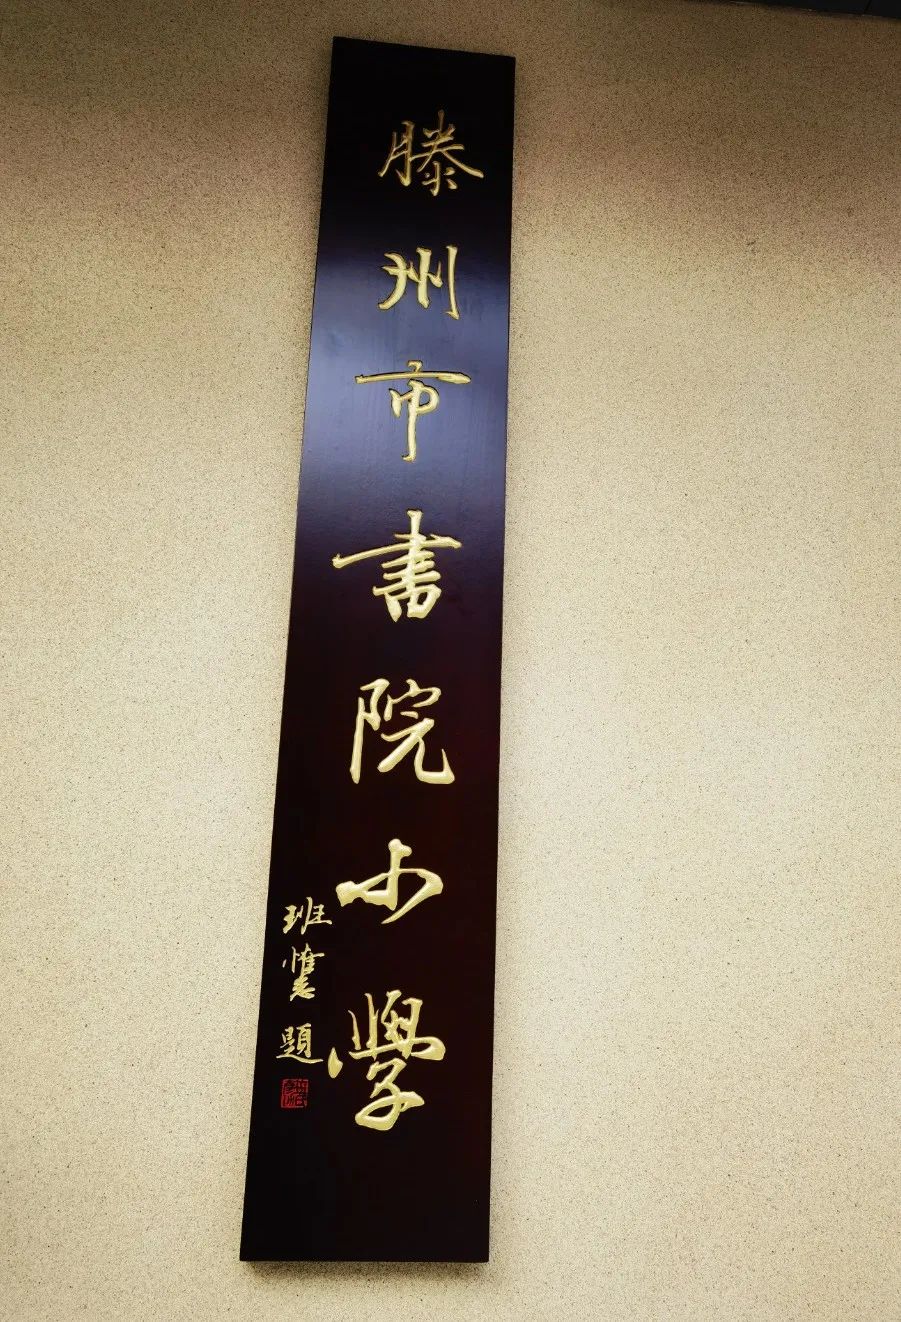 滕州市書院小學
班懬題